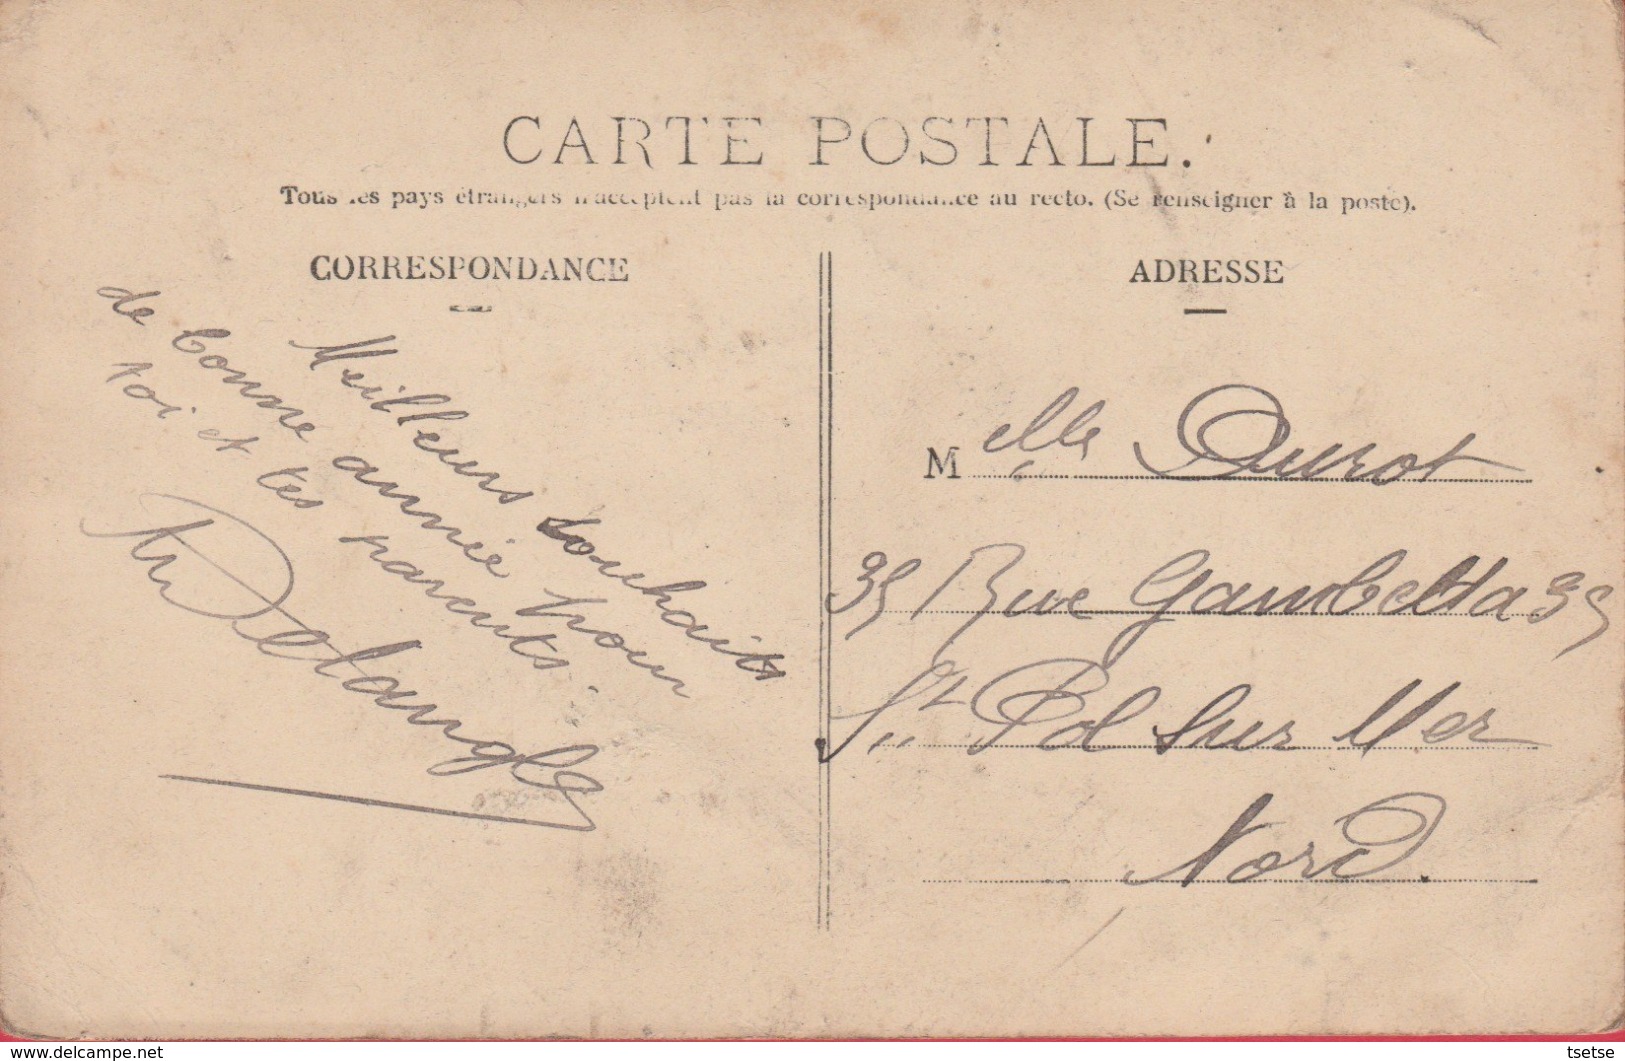 CARTE POSTALE.
Tous les pays étrangers n'acceptent pas la correspondance au recto. (Se renseigner à la poste).
CORRESPONDANCE
ADRESSE
Meilleurs souhaits
de bonne année pour
toi et tes parents.
Delangle
Melle Durot
35 Rue Gambetta 35
St Pol sur Mer
Nord.
delcampe.net
tsetse